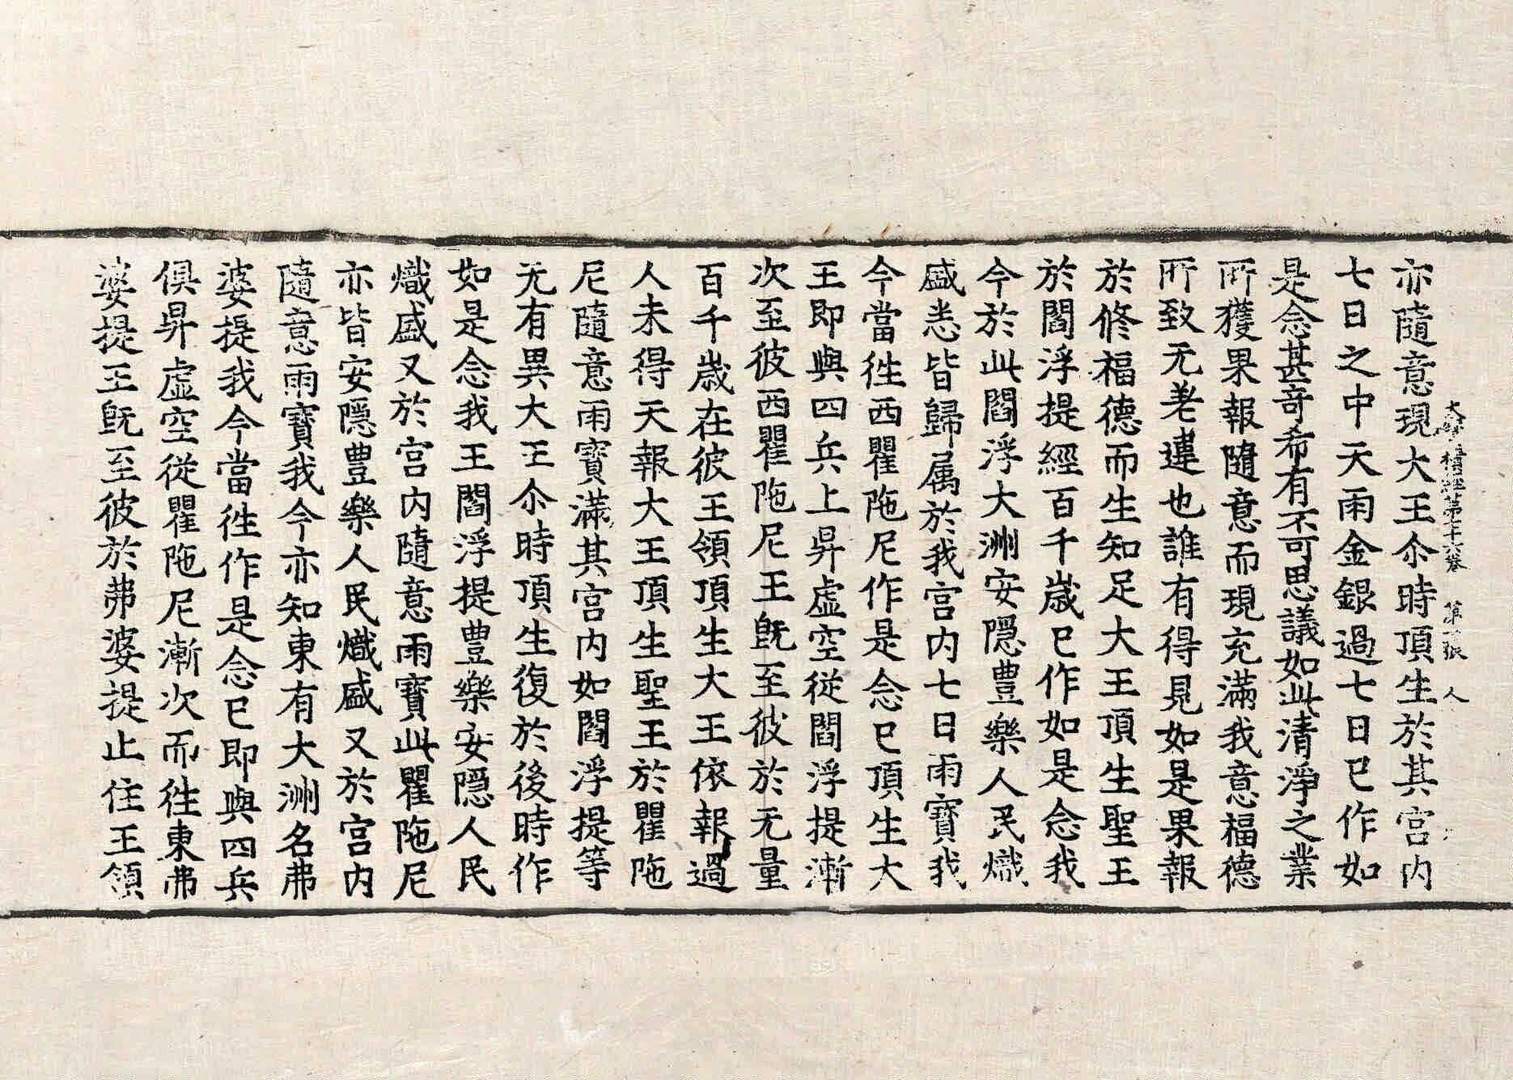 大樓炭經第十六卷 第 張 人
亦隨意現大王尒時頂生於其宮内
七日之中天雨金銀過七日已作如
是念甚奇希有不可思議如此清淨之業
所獲果報隨意而現充滿我意福德
所致无差違也誰有得見如是果報
於修福德而生知足大王頂生聖王
於閻浮提經百千歲已作如是念我
今於此閻浮大洲安隱豊樂人民熾
盛悉皆歸属於我宮内七日雨寶我
今當往西瞿陁尼作是念已頂生大
王即與四兵上昇虛空從閻浮提漸
次至彼西瞿陁尼王旣至彼於无量
百千歲在彼王領頂生大王依報過
人未得天報大王頂生聖王於瞿陁
尼隨意雨寶滿其宮内如閻浮提等
无有異大王尒時頂生復於後時作
如是念我王閻浮提豊樂安隱人民
熾盛又於宮内隨意雨寶此瞿陁尼
亦皆安隱豊樂人民熾盛又於宮内
隨意雨寶我今亦知東有大洲名弗
婆提我今當往作是念已即與四兵
俱昇虛空從瞿陁尼漸次而往東弗
婆提王旣至彼於弗婆提止住王領